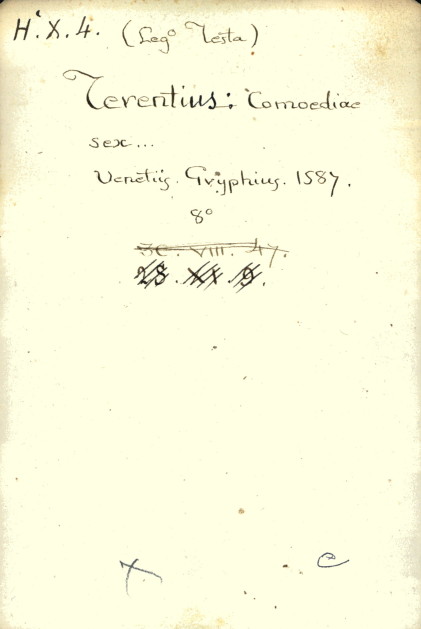 H. X. 4. (Leg° Testa)
Terentius: Comoediae
sex...
Venetiis. Gryphius. 1587.
8°
VIII. 47.
28. XX. 9.
X
e